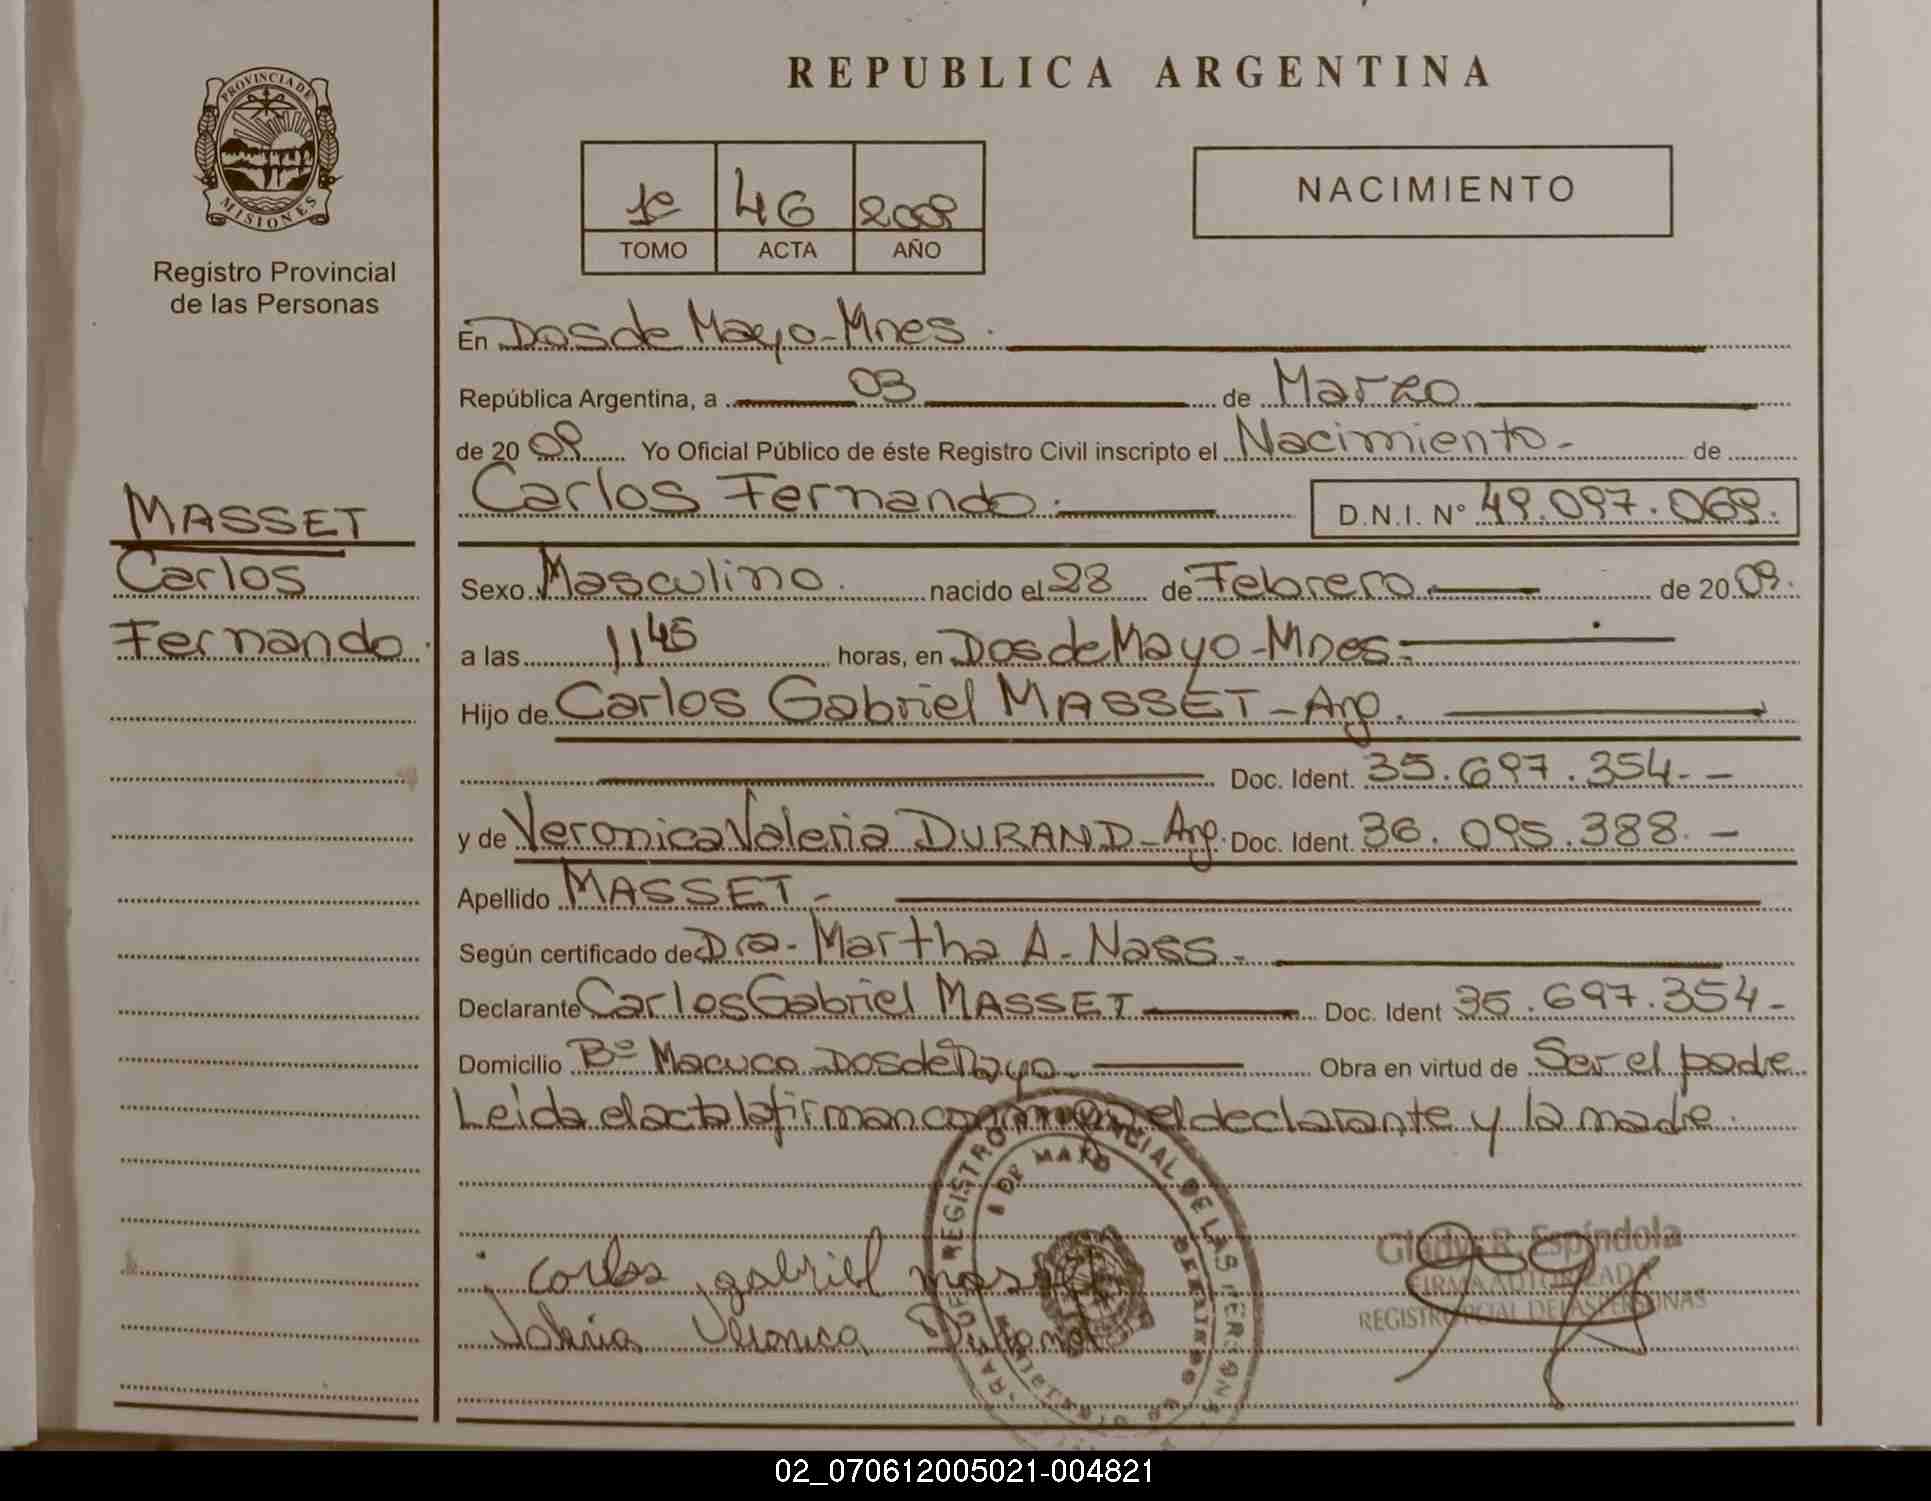 REPUBLICA ARGENTINA
PROVINCIA DE
MISIONES
Registro Provincial
de las Personas
1º 46 2009
TOMO ACTA AÑO
NACIMIENTO
En Dos de Mayo - Mnes.
República Argentina, a 03 de Marzo
de 20 09 Yo Oficial Público de éste Registro Civil inscripto el Nacimiento - de
Carlos Fernando. D.N.I. Nº 49.097.069.
MASSET
Carlos
Fernando.
Sexo Masculino. nacido el 28 de Febrero de 20 09.
a las 11 45 horas, en Dos de Mayo - Mnes.
Hijo de Carlos Gabriel MASSET - Arg.
Doc. Ident. 35.697.354. -
y de Veronica Valeria DURAND - Arg. Doc. Ident. 36.095.388. -
Apellido MASSET -
Según certificado de Dra. Martha A. Nass -
Declarante Carlos Gabriel MASSET Doc. Ident 35.697.354 -
Domicilio Bº Macuco - Dos de Mayo. Obra en virtud de Ser el padre
Leida el acta la firman conmigo el declarante y la madre.
REGISTRO PROVINCIAL DE LAS PERSONAS
DE MAYO
Gladys R. Espíndola
FIRMA AUTORIZADA
REGISTRO PCIAL DE LAS PERSONAS
carlos gabriel masset
Valeria Veronica Durand
02_070612005021-004821